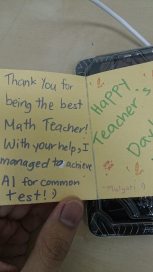 Thank You for
being the best
Math Teacher!
With your help, I
managed to achieve
A1 for common
test! :)
HAPPY
Teacher's
Day!